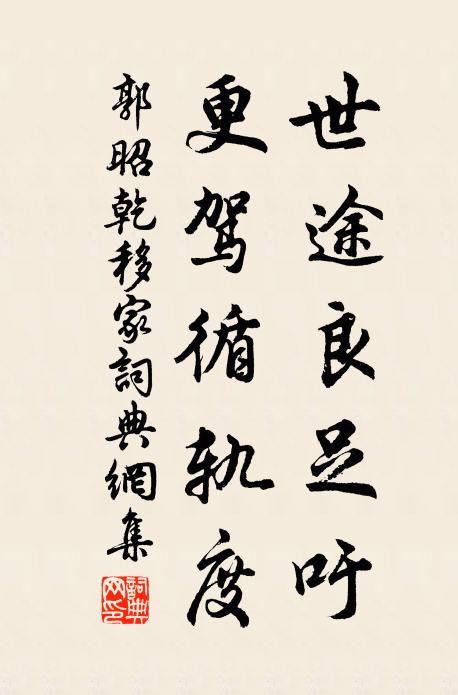 世途良足吁
更驾循轨度
郭昭乾移家詞典網集
詞典网印